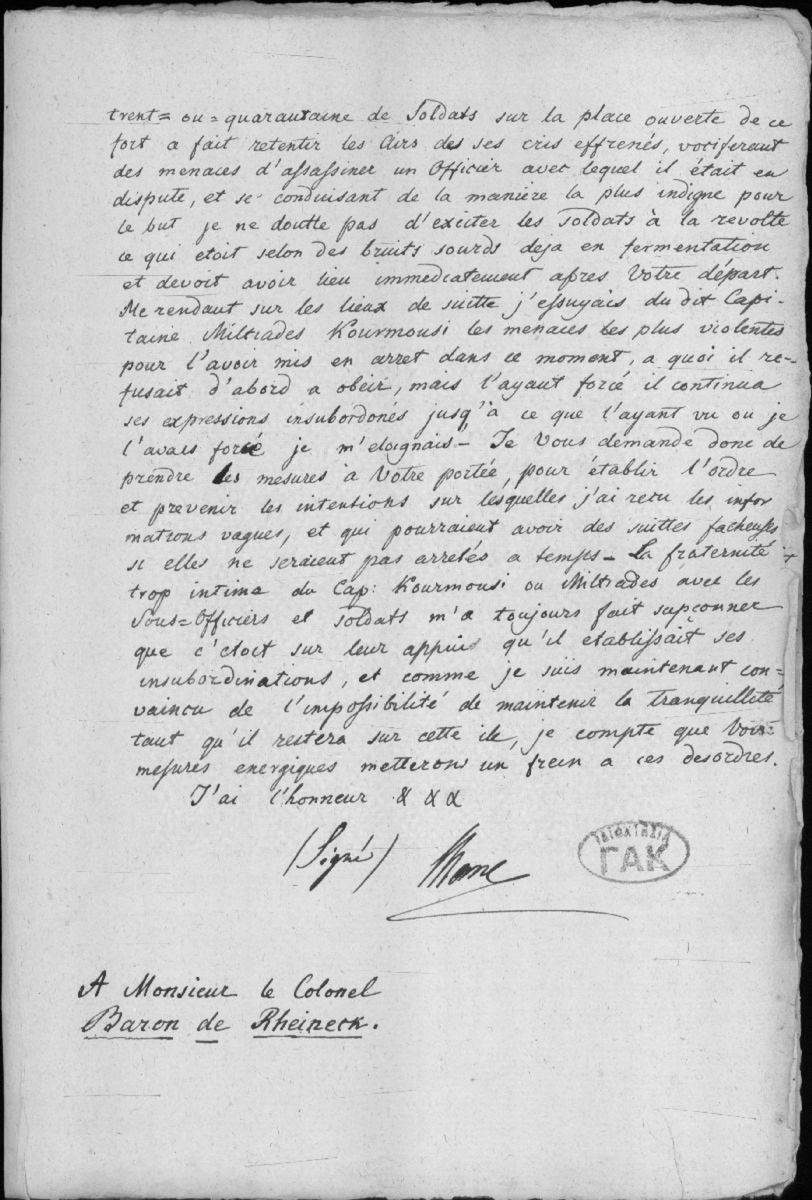 trent= ou=quarantaine de Soldats sur la place ouverte de ce
fort a fait retentir les Airs des ses cris effrenés, vociferant
des menaces d'assassiner un Officier avec lequel il était en
dispute, et se conduisant de la manière la plus indigne pour
le but je ne doutte pas d'exciter les Soldats à la revolte
ce qui etoit selon des bruits sourds deja en fermentation
et devoit avoir lieu immediatement apres Votre départ.
Me rendant sur les lieux de suitte j'essuyais du dit Capi-
taine Miltiades Kourmousi les menaces les plus violentes
pour l'avoir mis en arret dans ce moment, a quoi il re-
fusait d'abord a obéir, mais l'ayant forcé il continua
ses expressions insubordonés jusq'à ce que l'ayant vu ou je
l'avais forcé je m'eloignais – Je Vous demande donc de
prendre les mesures à Votre portée, pour établir l'ordre
et prevenir les intentions sur lesquelles j'ai recu les infor
mations vagues, et qui pourraient avoir des suittes facheuses
si elles ne seraient pas arretés a temps – La fraternité
trop intime du Cap: Kourmousi ou Miltiades avec les
Sous=Officiers et soldats m'a toujours fait supconner
que c'étoit sur leur appuis qu'il etablissait ses
insubordinations, et comme je suis maintenant con-
vaincu de l'impossibilité de maintenir la tranquillité
tant qu'il restera sur cette ile, je compte que Vos
mesures energiques metterons un frein a ces desordres.
J'ai l'honneur & & &
(Signé)
ΙΔΙΟΚΤΗΣΙΑ
ΓΑΚ
A Monsieur le Colonel
Baron de Rheineck.